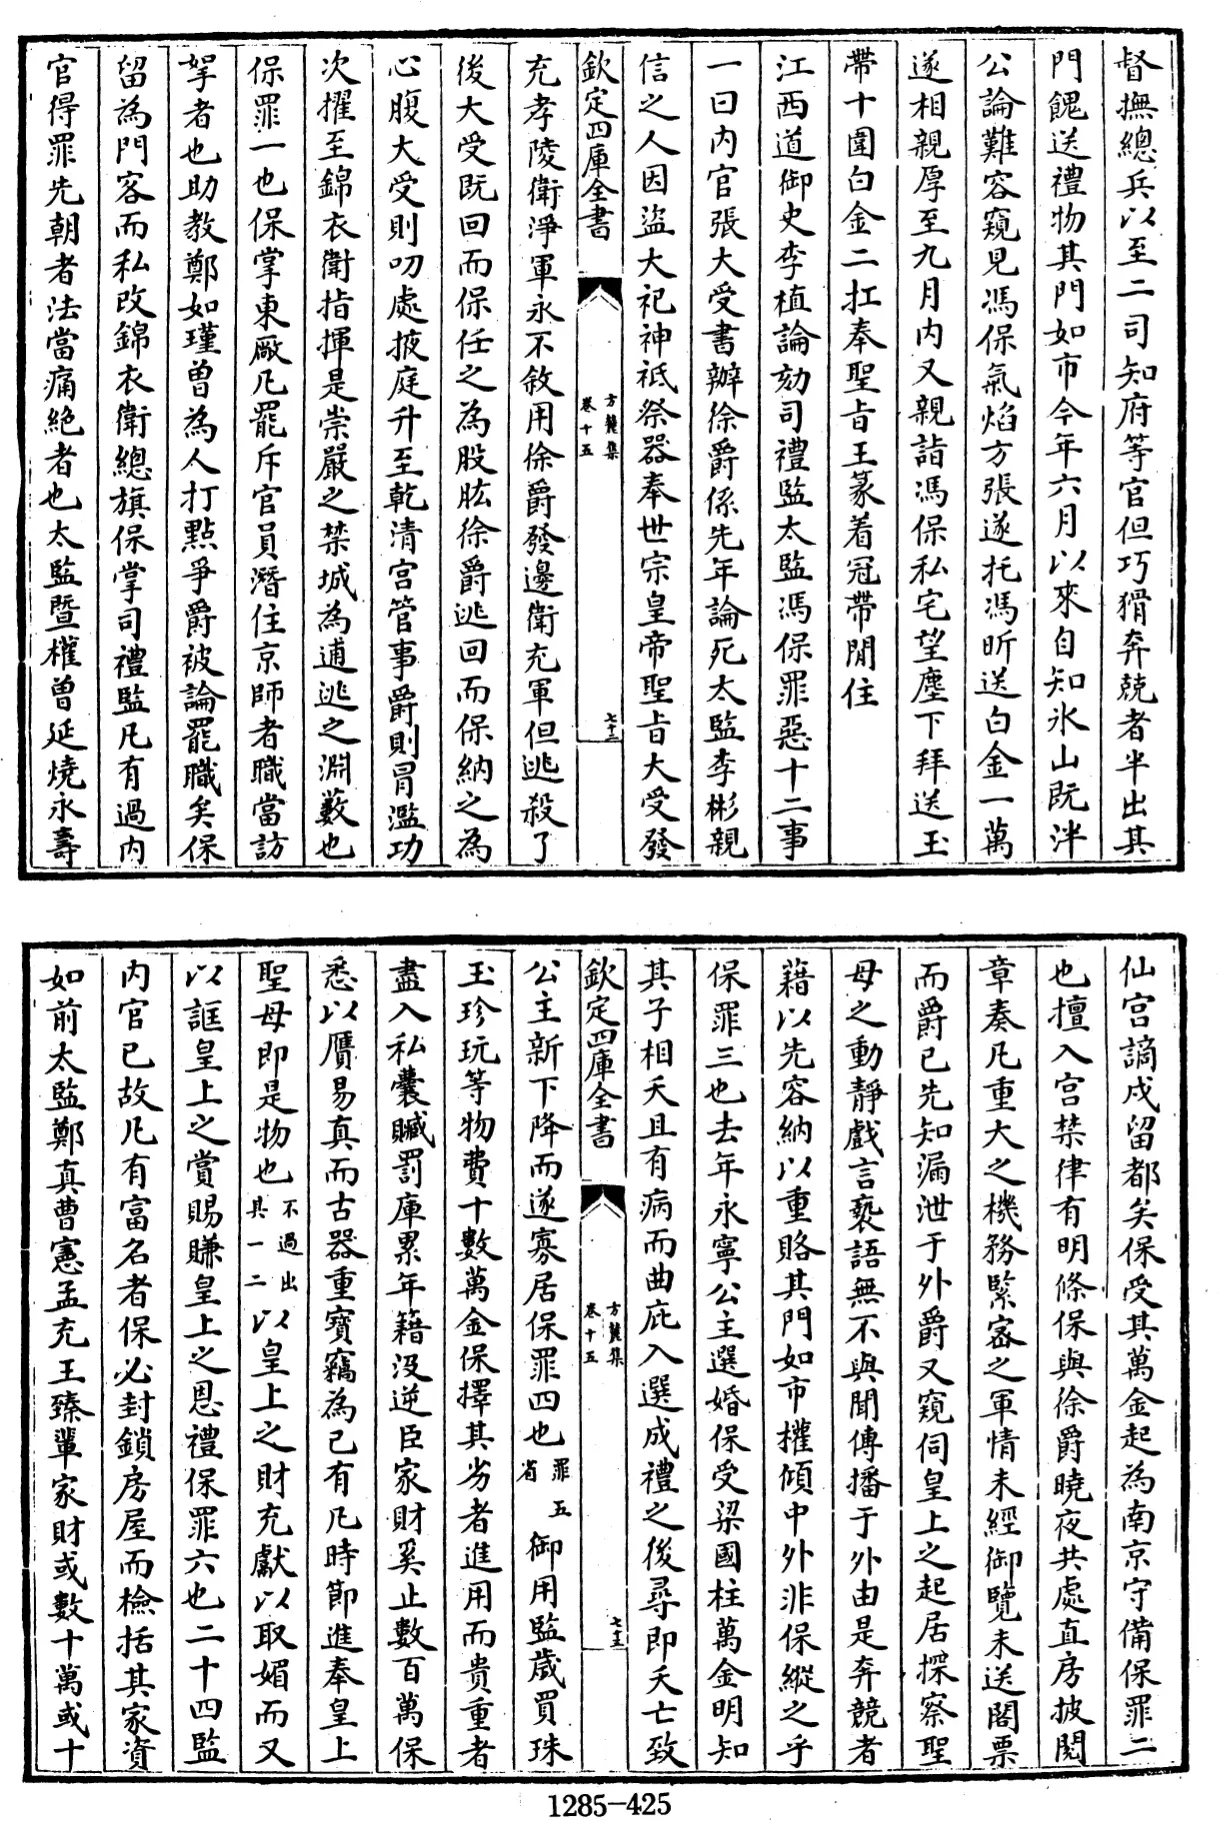 督撫總兵以至二司知府等官但巧猾奔競者半出其
門餽送禮物其門如市今年六月以來自知氷山既泮
公論難容窺見馮保氣焰方張遂托馮昕送白金一萬
遂相親厚至九月内又親詣馮保私宅望塵下拜送玉
帶十圍白金二扛奉聖旨王篆着冠帶閒住
江西道御史李植論劾司禮監太監馮保罪惡十二事
一曰内官張大受書辦徐爵係先年論死太監李彬親
信之人因盜大祀神祇祭器奉世宗皇帝聖旨大受發
欽定四庫全書
方麓集
卷十五
七十二
充孝陵衛淨軍永不敘用徐爵發邊衛充軍但逃殺了
後大受既回而保任之為股肱徐爵逃回而保納之為
心腹大受則叨處掖庭升至乾清宫管事爵則冐濫功
次擢至錦衣衛指揮是崇嚴之禁城為逋逃之淵藪也
保罪一也保掌東厰凡罷斥官員潛住京師者職當訪
拏者也助教鄭如瑾曽為人打點爭爵被論罷職矣保
留為門客而私改錦衣衛總旗保掌司禮監凡有過内
官得罪先朝者法當痛絶者也太監暨權曽延燒永壽
仙宫謫戍留都矣保受其萬金起為南京守備保罪二
也擅入宫禁律有明條保與徐爵曉夜共處直房披閲
章奏凡重大之機務緊宻之軍情未經御覽未送閣票
而爵已先知漏泄于外爵又窺伺皇上之起居探察聖
母之動靜戲言䙝語無不與聞傳播于外由是奔競者
藉以先容納以重賂其門如市權傾中外非保縱之乎
保罪三也去年永寧公主選婚保受梁國柱萬金明知
其子相夭且有病而曲庇入選成禮之後尋即夭亡致
欽定四庫全書
方麓集
卷十五
七十三
公主新下降而遂寡居保罪四也罪五省御用監歲買珠
玉珍玩等物費十數萬金保擇其劣者進用而貴重者
盡入私囊贓罰庫累年籍沒逆臣家財奚止數百萬保
悉以贋易真而古器重寶竊為己有凡時節進奉皇上
聖母即是物也不過出其一二以皇上之財充獻以取媚而又
以誆皇上之賞賜賺皇上之恩禮保罪六也二十四監
内官已故凡有富名者保必封鎖房屋而檢括其家資
如前太監鄭真曹憲孟充王臻輩家財或數十萬或十
1285-425